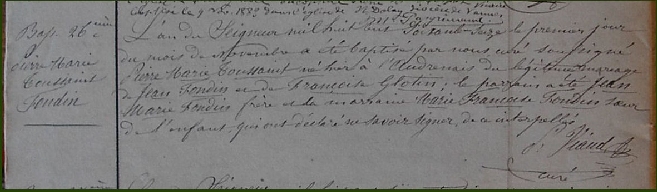 Bapt. 26ème
d
Pierre Marie
Toussaint
Fondin
L'an du Seigneur mil huit cent Soixante-Seize le premier jour
du mois de Novembre a été baptisé par nous curé soussigné
Pierre Marie Toussaint né hier à l'Audrenais du légitime mariage
de Jean Fondin et de Françoise Glotin; le parrain a été Jean
Marie Fondin frère et la marraine Marie Françoise Fondin sœur
de l'enfant qui ont déclaré ne savoir signer, de ce interpellés
curé